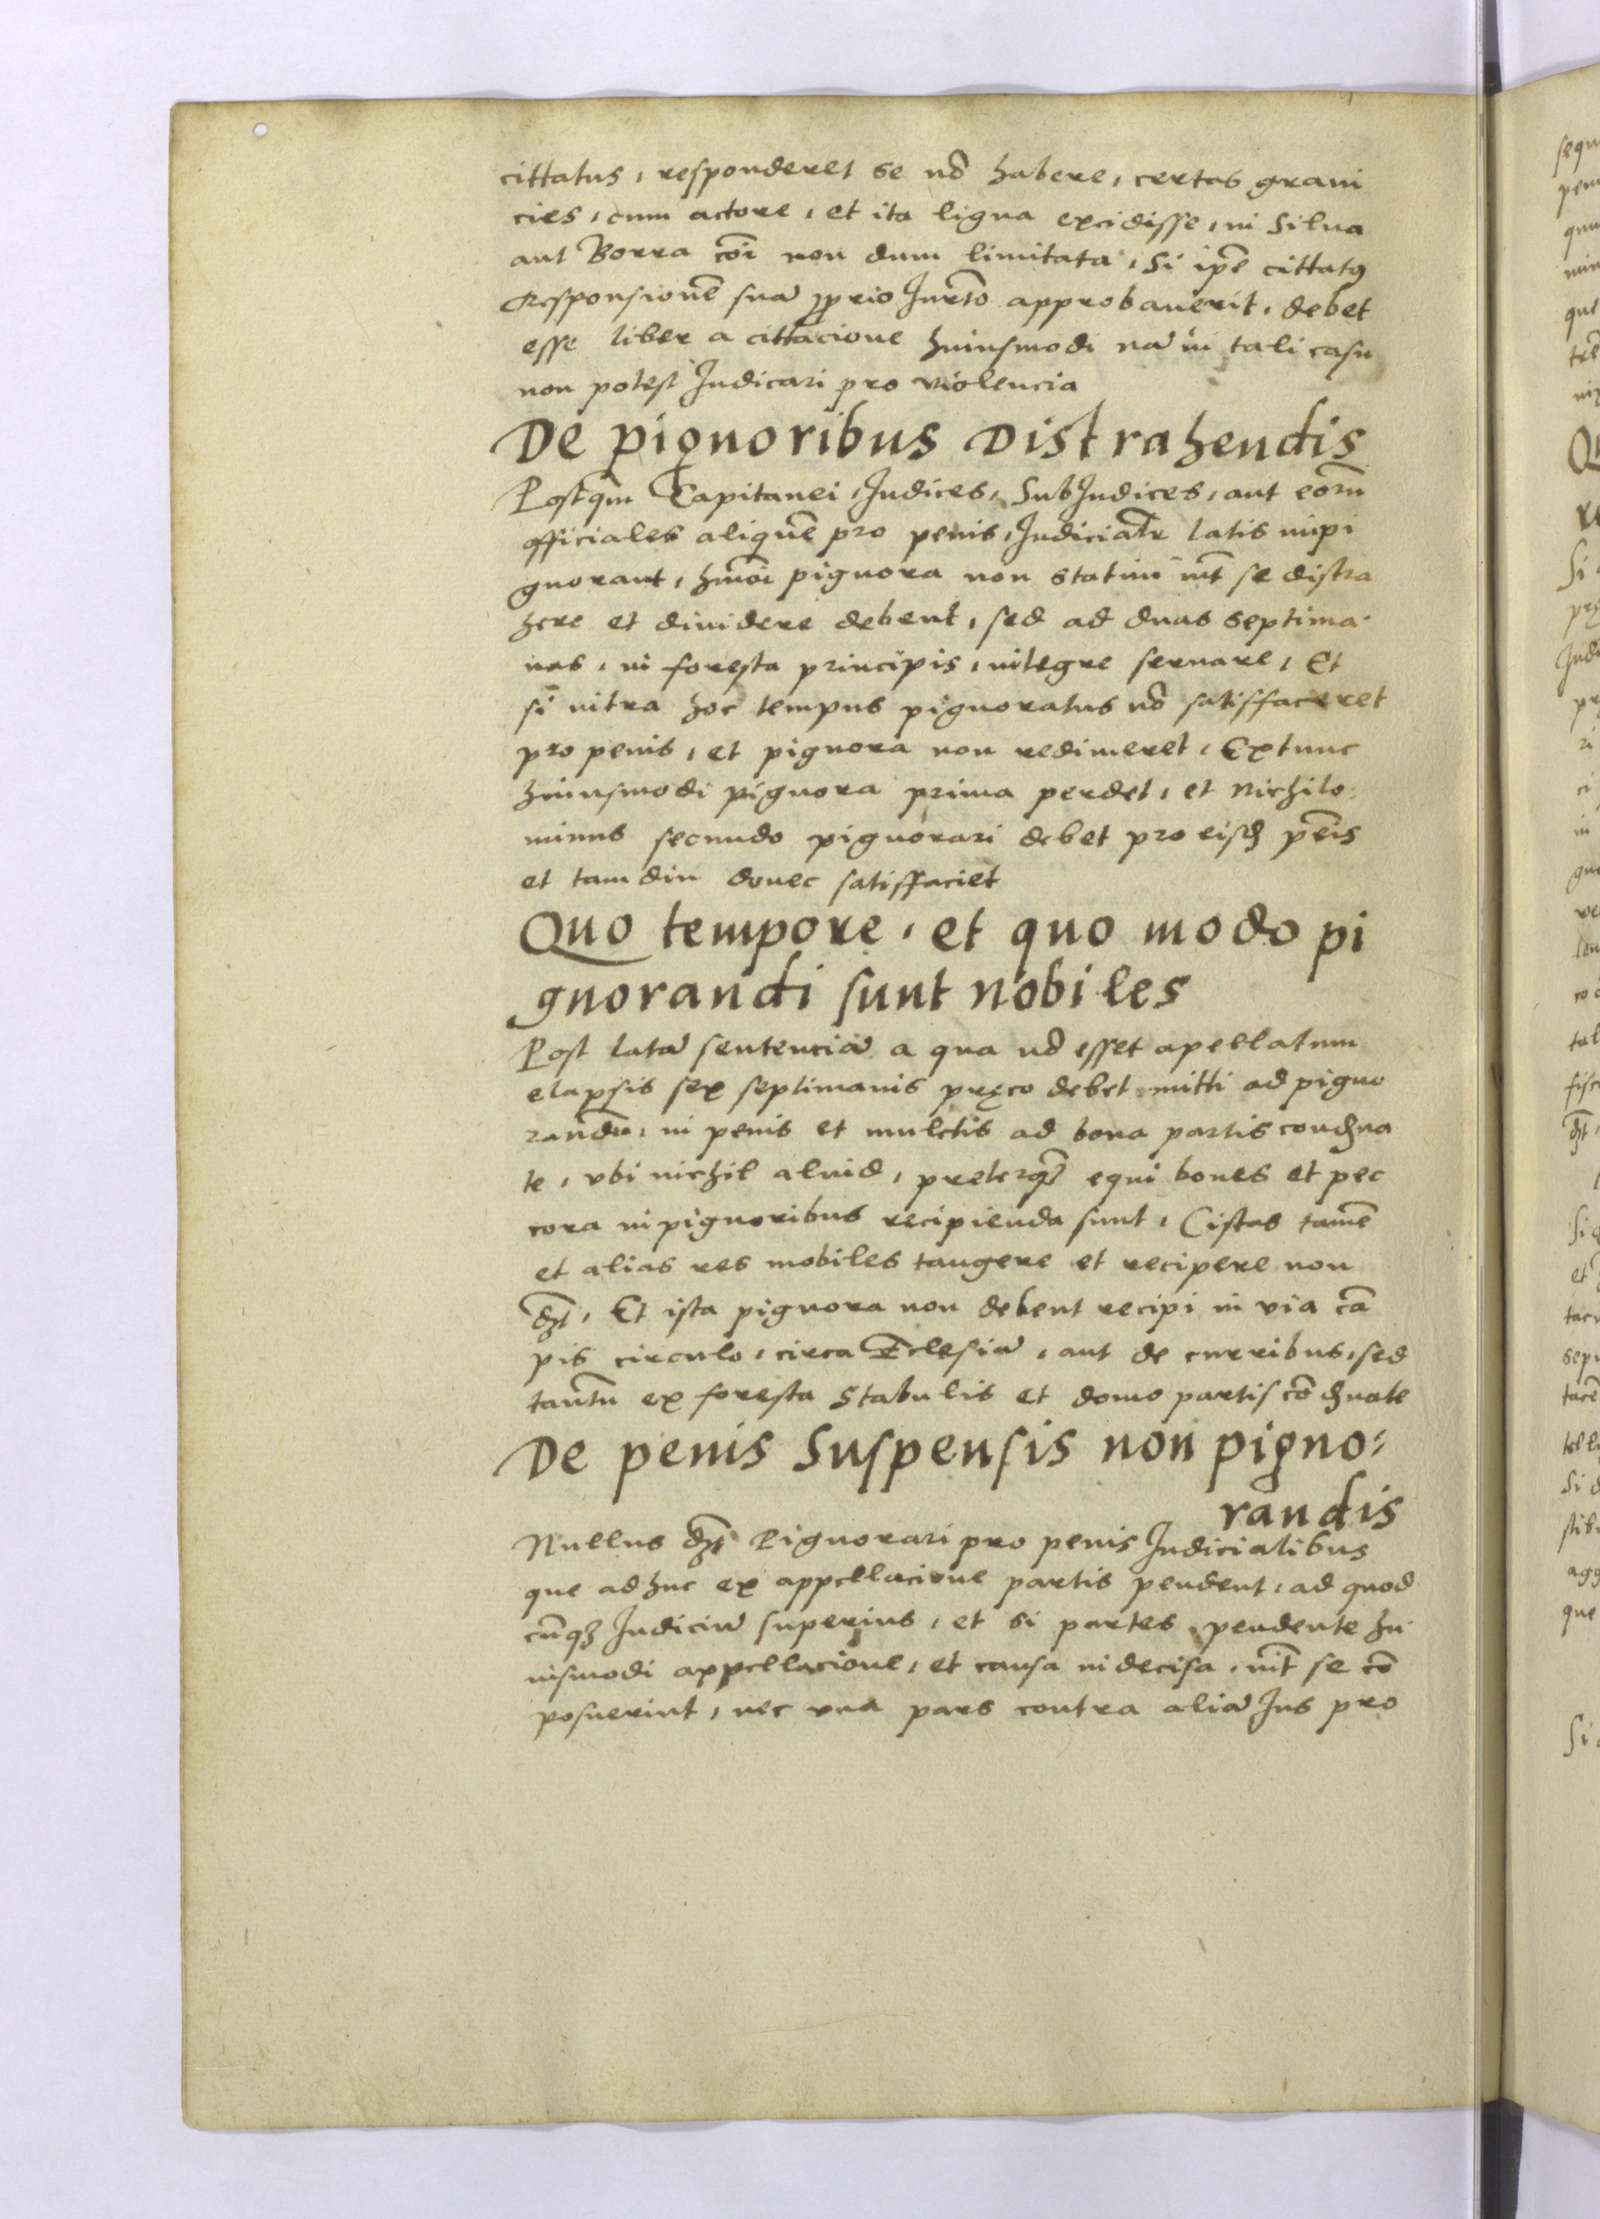 cittatus, responderet se nō habere, certas grani
cies, cum actore, et ita ligna excidisse, in Silua
aut Borra cōi non dum limitata, Si ipē cittatꝯ
Responsionē suā ꝓprio Jurtō approbauerit, debet
esse liber a cittacione huiusmodi nā in tali casu
non potest Judicari pro violencia
De pignoribus Distrahendis
Postqm̄ Capitanei, Judices, SubJudices, aut eorū
officiales aliquē pro penis, Judicialr̄ latis inpi
gnorant, hmōi pignora non statim int̄ se distra
here et diuidere debent, sed ad duas septima
nas, in foresta principis, integre seruare, Et
si vltra hoc tempus pignoratus nō satisfaceret
pro penis, et pignora non redimeret, Extunc
huiusmodi pignora prima perdet, et nichilo
minus secundo pignorari debet pro eisdꝫ penīs
et tam diu donec satisfaciet
Quo tempore, et quo modo pi
gnorandi sunt nobiles
Post latā sentenciā a qua nō esset apellatum
elapsis sex septimanis pręco debet mitti ad pigno
randū, in penis et mulctis ad bona partis condꝫna
te, vbi nichil aliud, preterqꝫ̄ equi boues et pec
cora inpignoribus recipienda sunt, Cistas tamē
et alias res mobiles tangere et recipere non
dꝫt̄, Et ista pignora non debent recipi in via cā
pis circulo, circa Eclesiā, aut de curribus, sed
tantū ex foresta Stabulis et domo partis cō dꝫnate
De penis Suspensis non pigno:
randis
Nullus dꝫt̄ Pignorari pro penis Judicialibus
que ad huc ex appellacione partis pendent, ad quod
cūqꝫ Judiciū superius, et si partes pendente hu
iusmodi appellacione, et causa indecisa, int̄ se cō
posuerint, nec vna pars contra aliā Jus pro